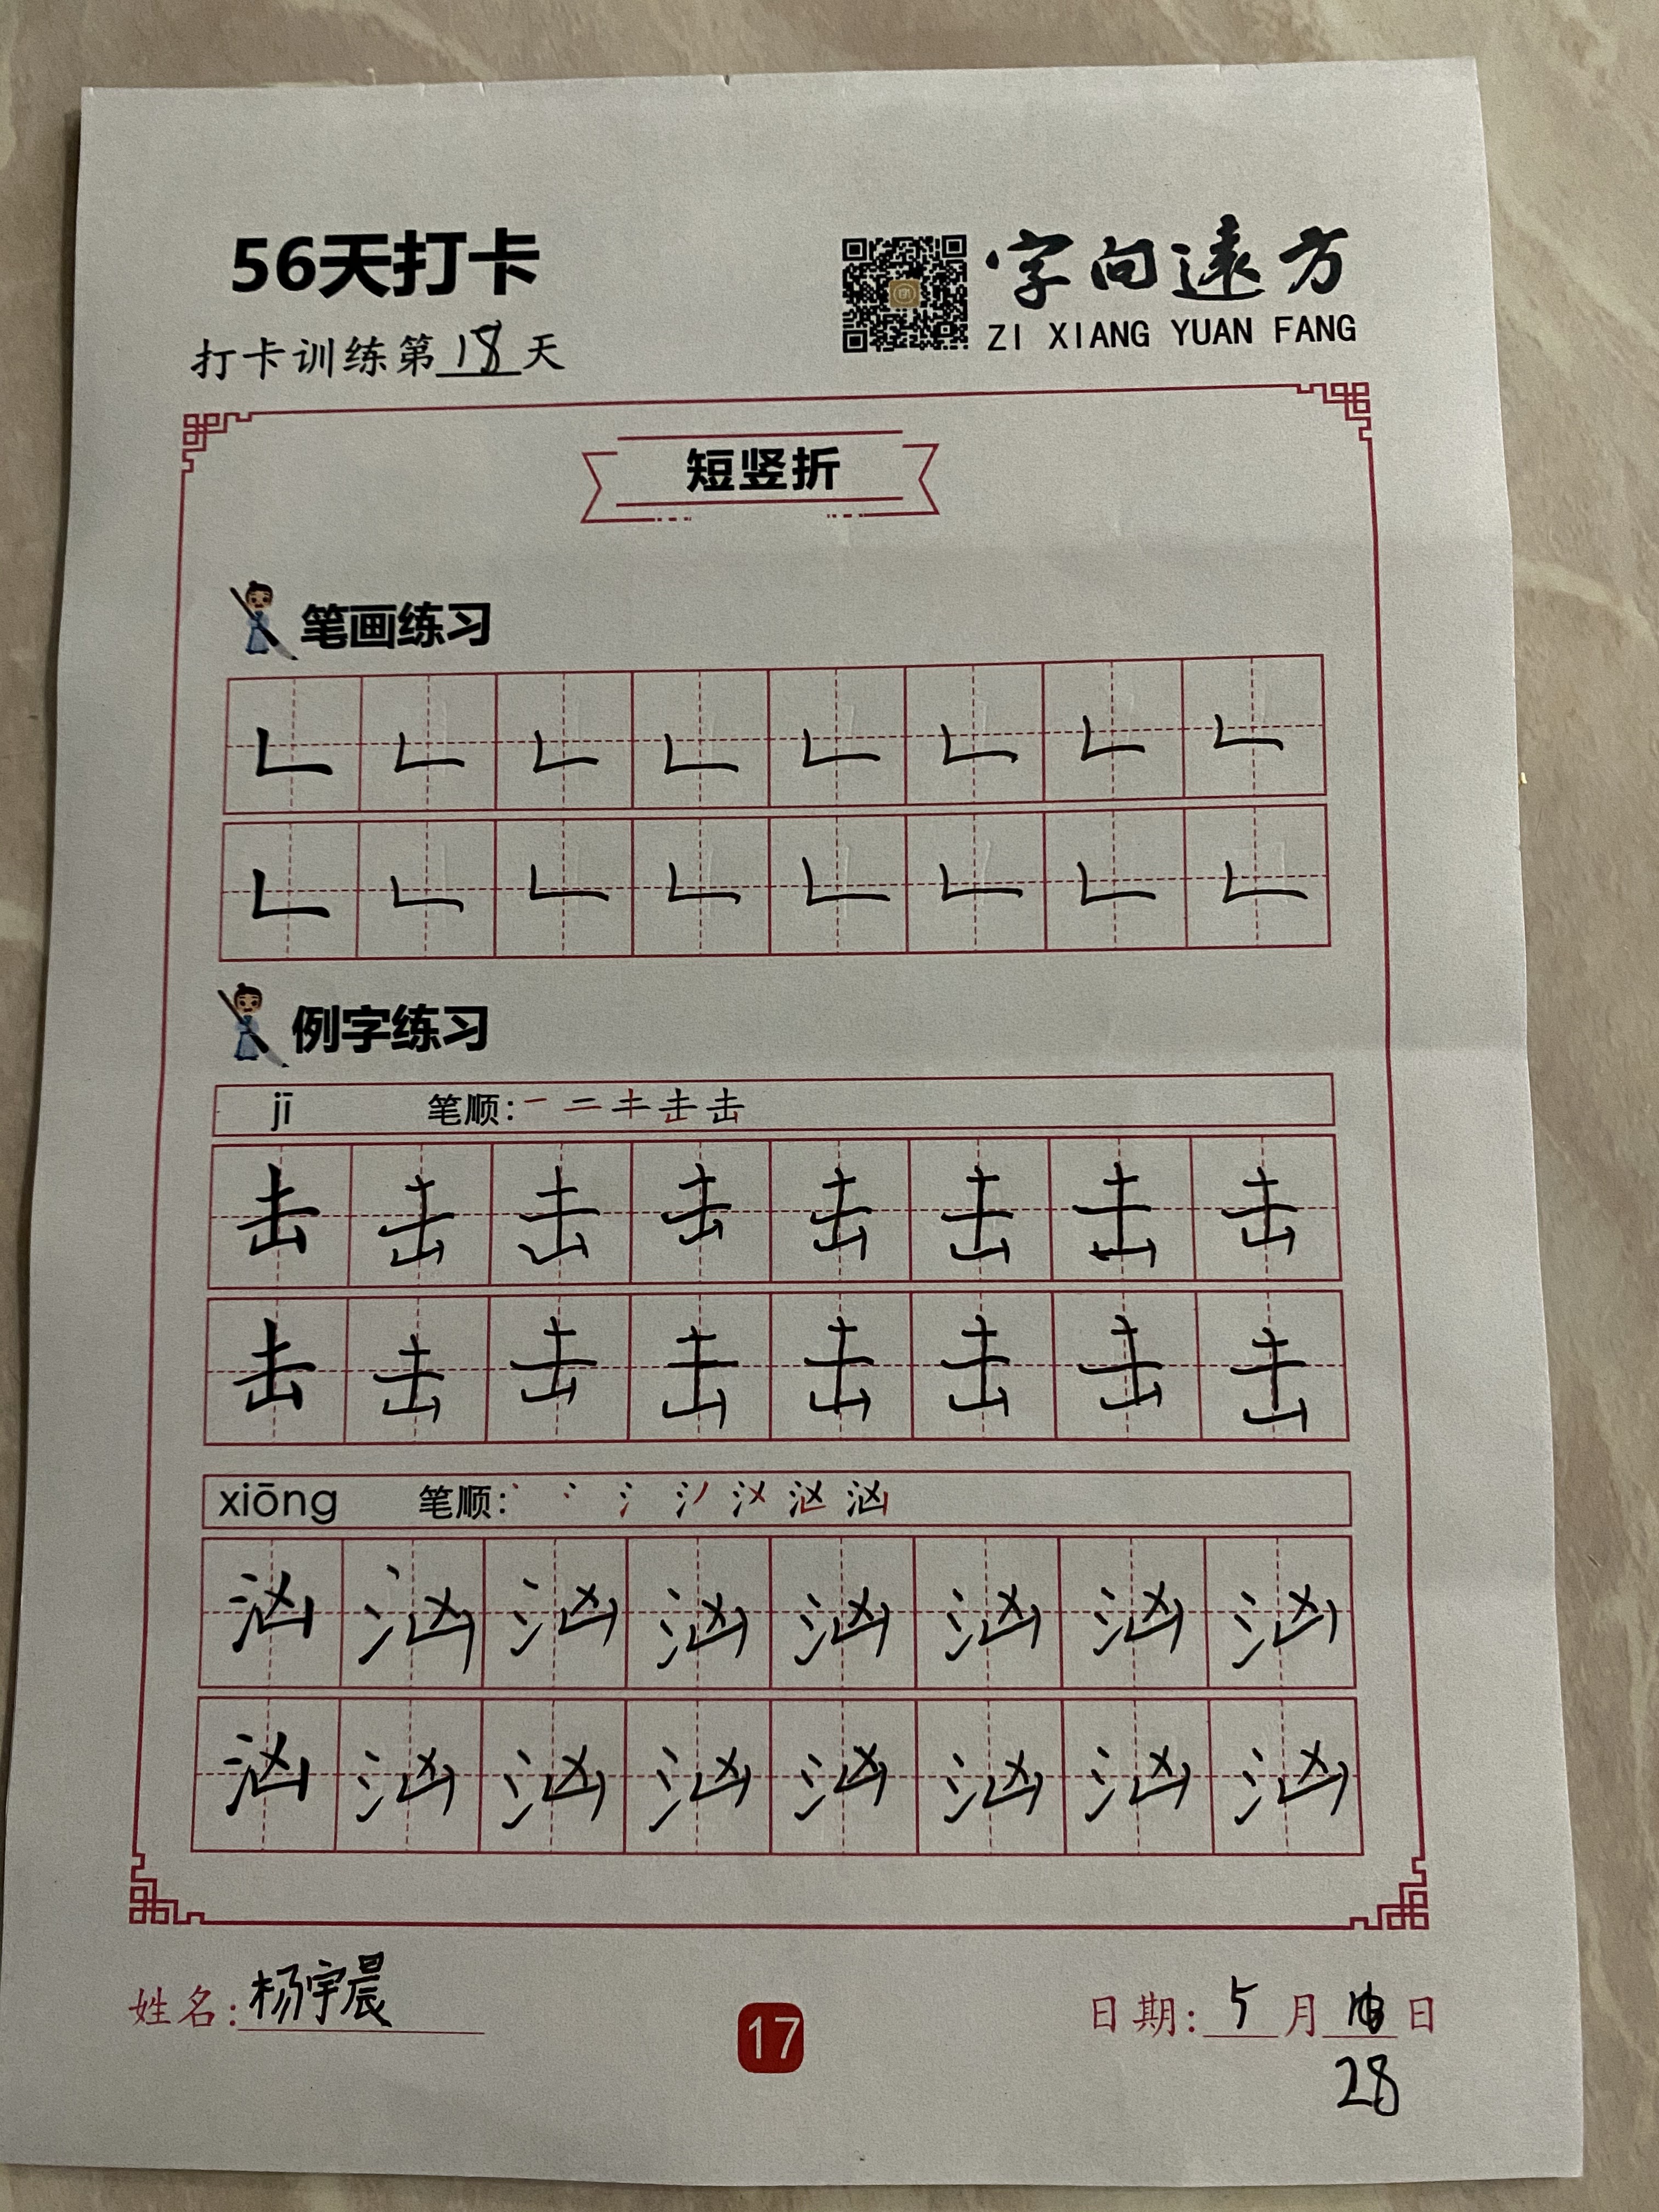 56天打卡
字向遠方
ZI XIANG YUAN FANG
打卡训练第18天
短竖折
笔画练习
𠃊 𠃊 𠃊 𠃊 𠃊 𠃊 𠃊 𠃊
𠃊 𠃊 𠃊 𠃊 𠃊 𠃊 𠃊 𠃊
例字练习
jī 笔顺: 一 二 キ 击 击
击 击 击 击 击 击 击 击
击 击 击 击 击 击 击 击
xiōng 笔顺:
汹 汹 汹 汹 汹 汹 汹 汹
汹 汹 汹 汹 汹 汹 汹 汹
姓名: 杨宇晨
17
日期: 5月 日
28